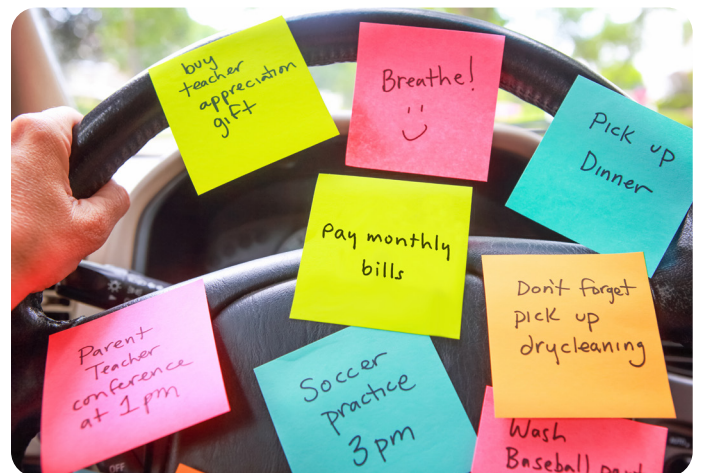 buy
teacher
appreciation
gift
Breathe!
Pick up
Dinner
Pay monthly
bills
Don't forget
pick up
drycleaning
Parent
Teacher
conference
at 1pm
Soccer
practice
3pm
Wash
Baseball
OFF